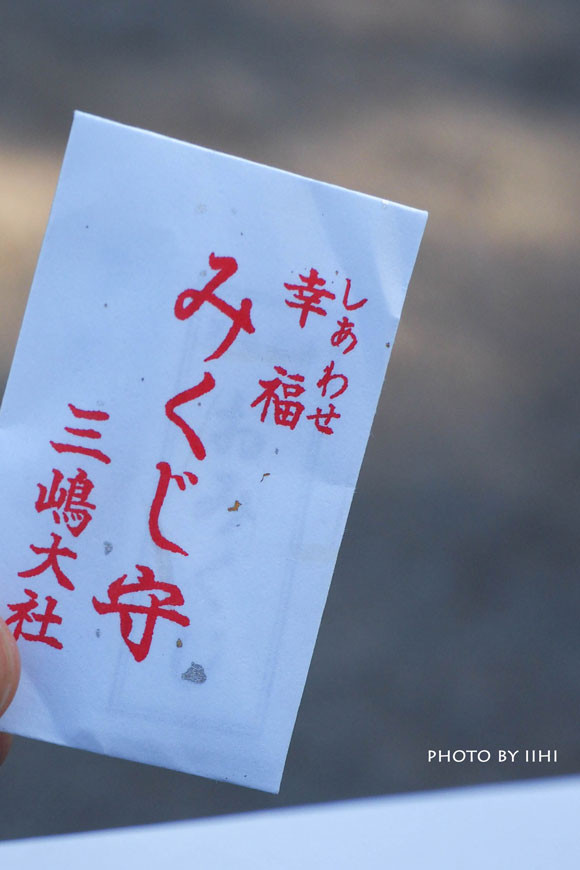 しあわせ
幸福
みくじ守
三嶋大社
PHOTO BY IIHI